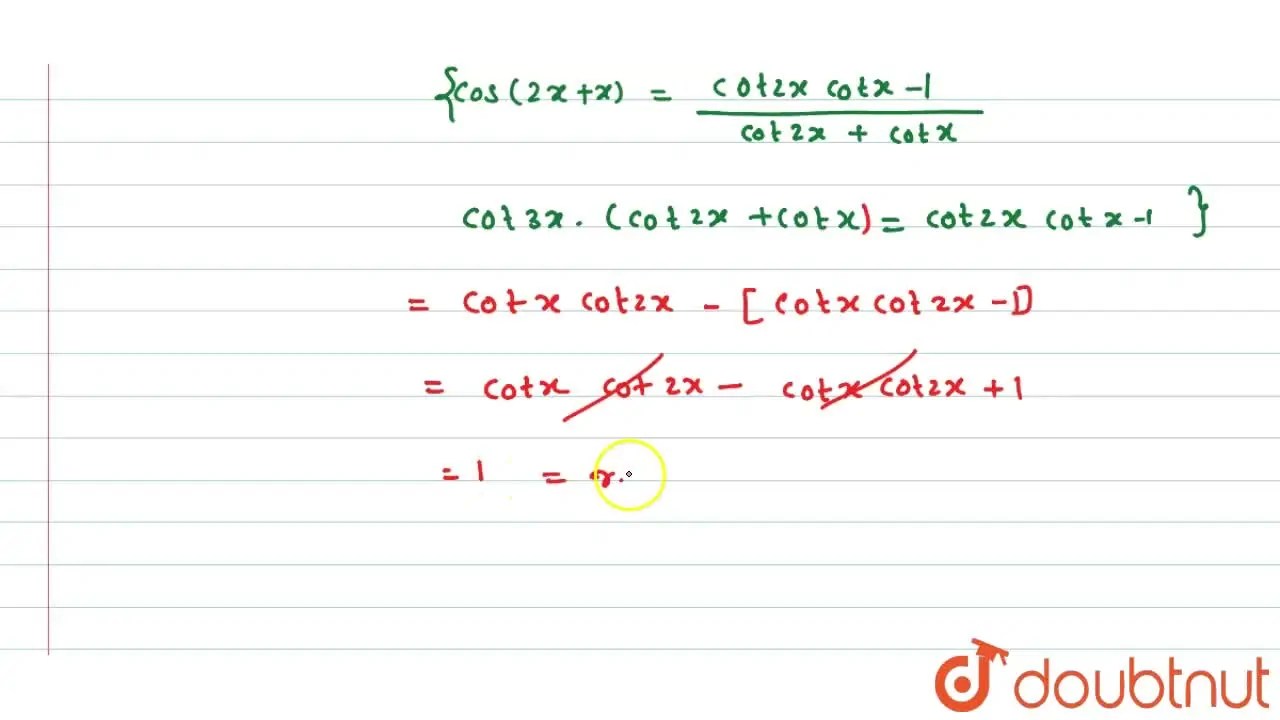 {cos(2x+x) = cot2x cotx -1
cot2x + cotx
cot3x. (cot2x +cotx) = cot2x cotx -1 }
= cotx cot2x - [cotx cot2x -1]
= cotx cot2x - cotx cot2x + 1
= 1 =
doubtnut